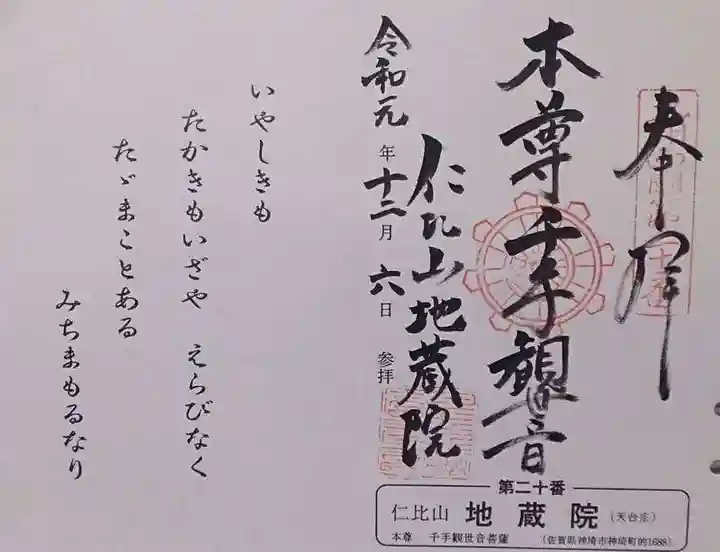 奉拝
本尊千手観音
仁比山地蔵院
令和元年十二月六日 参拝
いやしきも
たかきもいざや えらびなく
たゞまことある
みちまもるなり
第二十番
仁比山 地蔵院 (天台宗)
本尊 千手観世音菩薩 (佐賀県神埼市神埼町的1688)